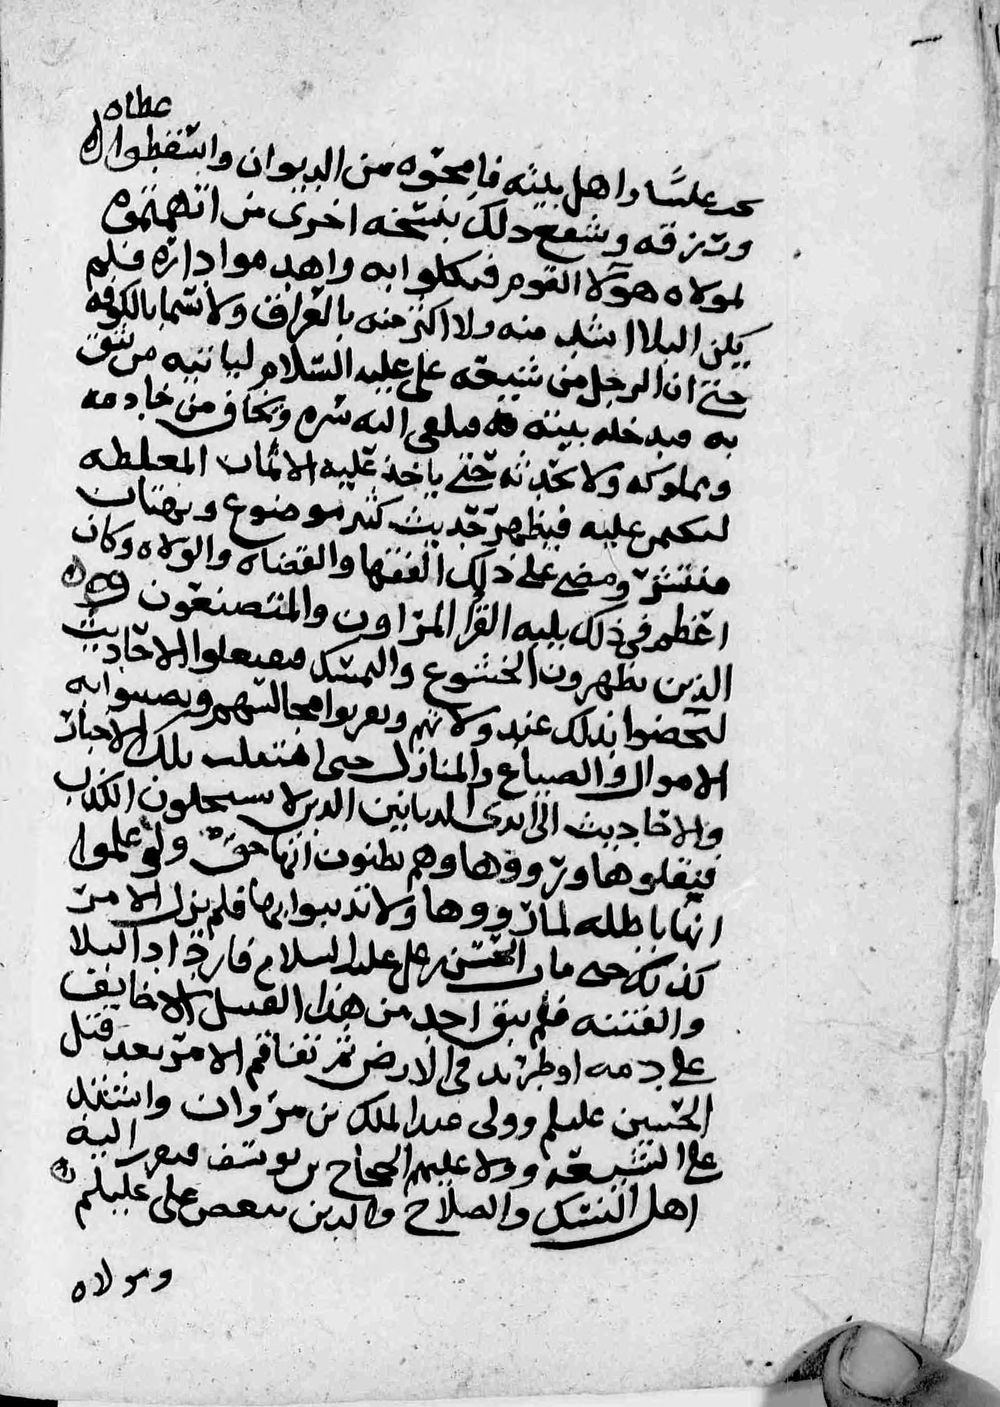 عطاه
يحب عليًّا واهل بيته فامحوه من الديوان واسقطوا
ورزقه وشفع ذلك بنسخه اخرى من اتهمتموه
لمولاه هولا القوم فنكلوا به واهدموا داره فلم
يكن البلا اشد منه ولا اكثر منه بالعراق ولا سيما بالكوفه
حتى ان الرجل من شيعة علي عليه السلام لياتيه من يثق
به فيدخله بيته فيلقي اليه سره ويخاف من خادمه
ومملوكه ولا يحدثه حتى ياخذ عليه الايمان المغلظه
ليكتمن عليه فيظهر حديث كثير موضوع وبهتان
منتشر ومضى على ذلك الفقها والقضاه والولاه وكان
اعظم في ذلك بليه القرا المراون والمتصنعون
الذين يظهرون الخشوع والنسك فيفتعلوا الاحاديث
ليحضوا بذلك عند ولاتهم ويقربوا مجالسهم ويصيبوا به
الاموال والضياع والمنازل حتى انتقلت تلك الاخبار
والاحاديث الى ايدي الديانين الذين لا يستحلون الكذب
فنقلوها ورووها وهم يظنون انها حق ولو علموا
انها باطله لما رووها ولا تدينوا بها فلم يزل الامر
كذلك حتى مات الحسن بن علي عليه السلام فازداد البلا
والفتنه فلم يبق احد من هذا القبيل الا خايف
على دمه او طريد في الارض ثم تفاقم الامر بعد قتل
الحسين عليلم وولى عبد الملك بن مروان واشتد
على الشيعه وولا عليهم الحجاج بن يوسف فتقرب اليه
اهل النسك والصلاح والدين ببغض علي عليلم
وموالاه